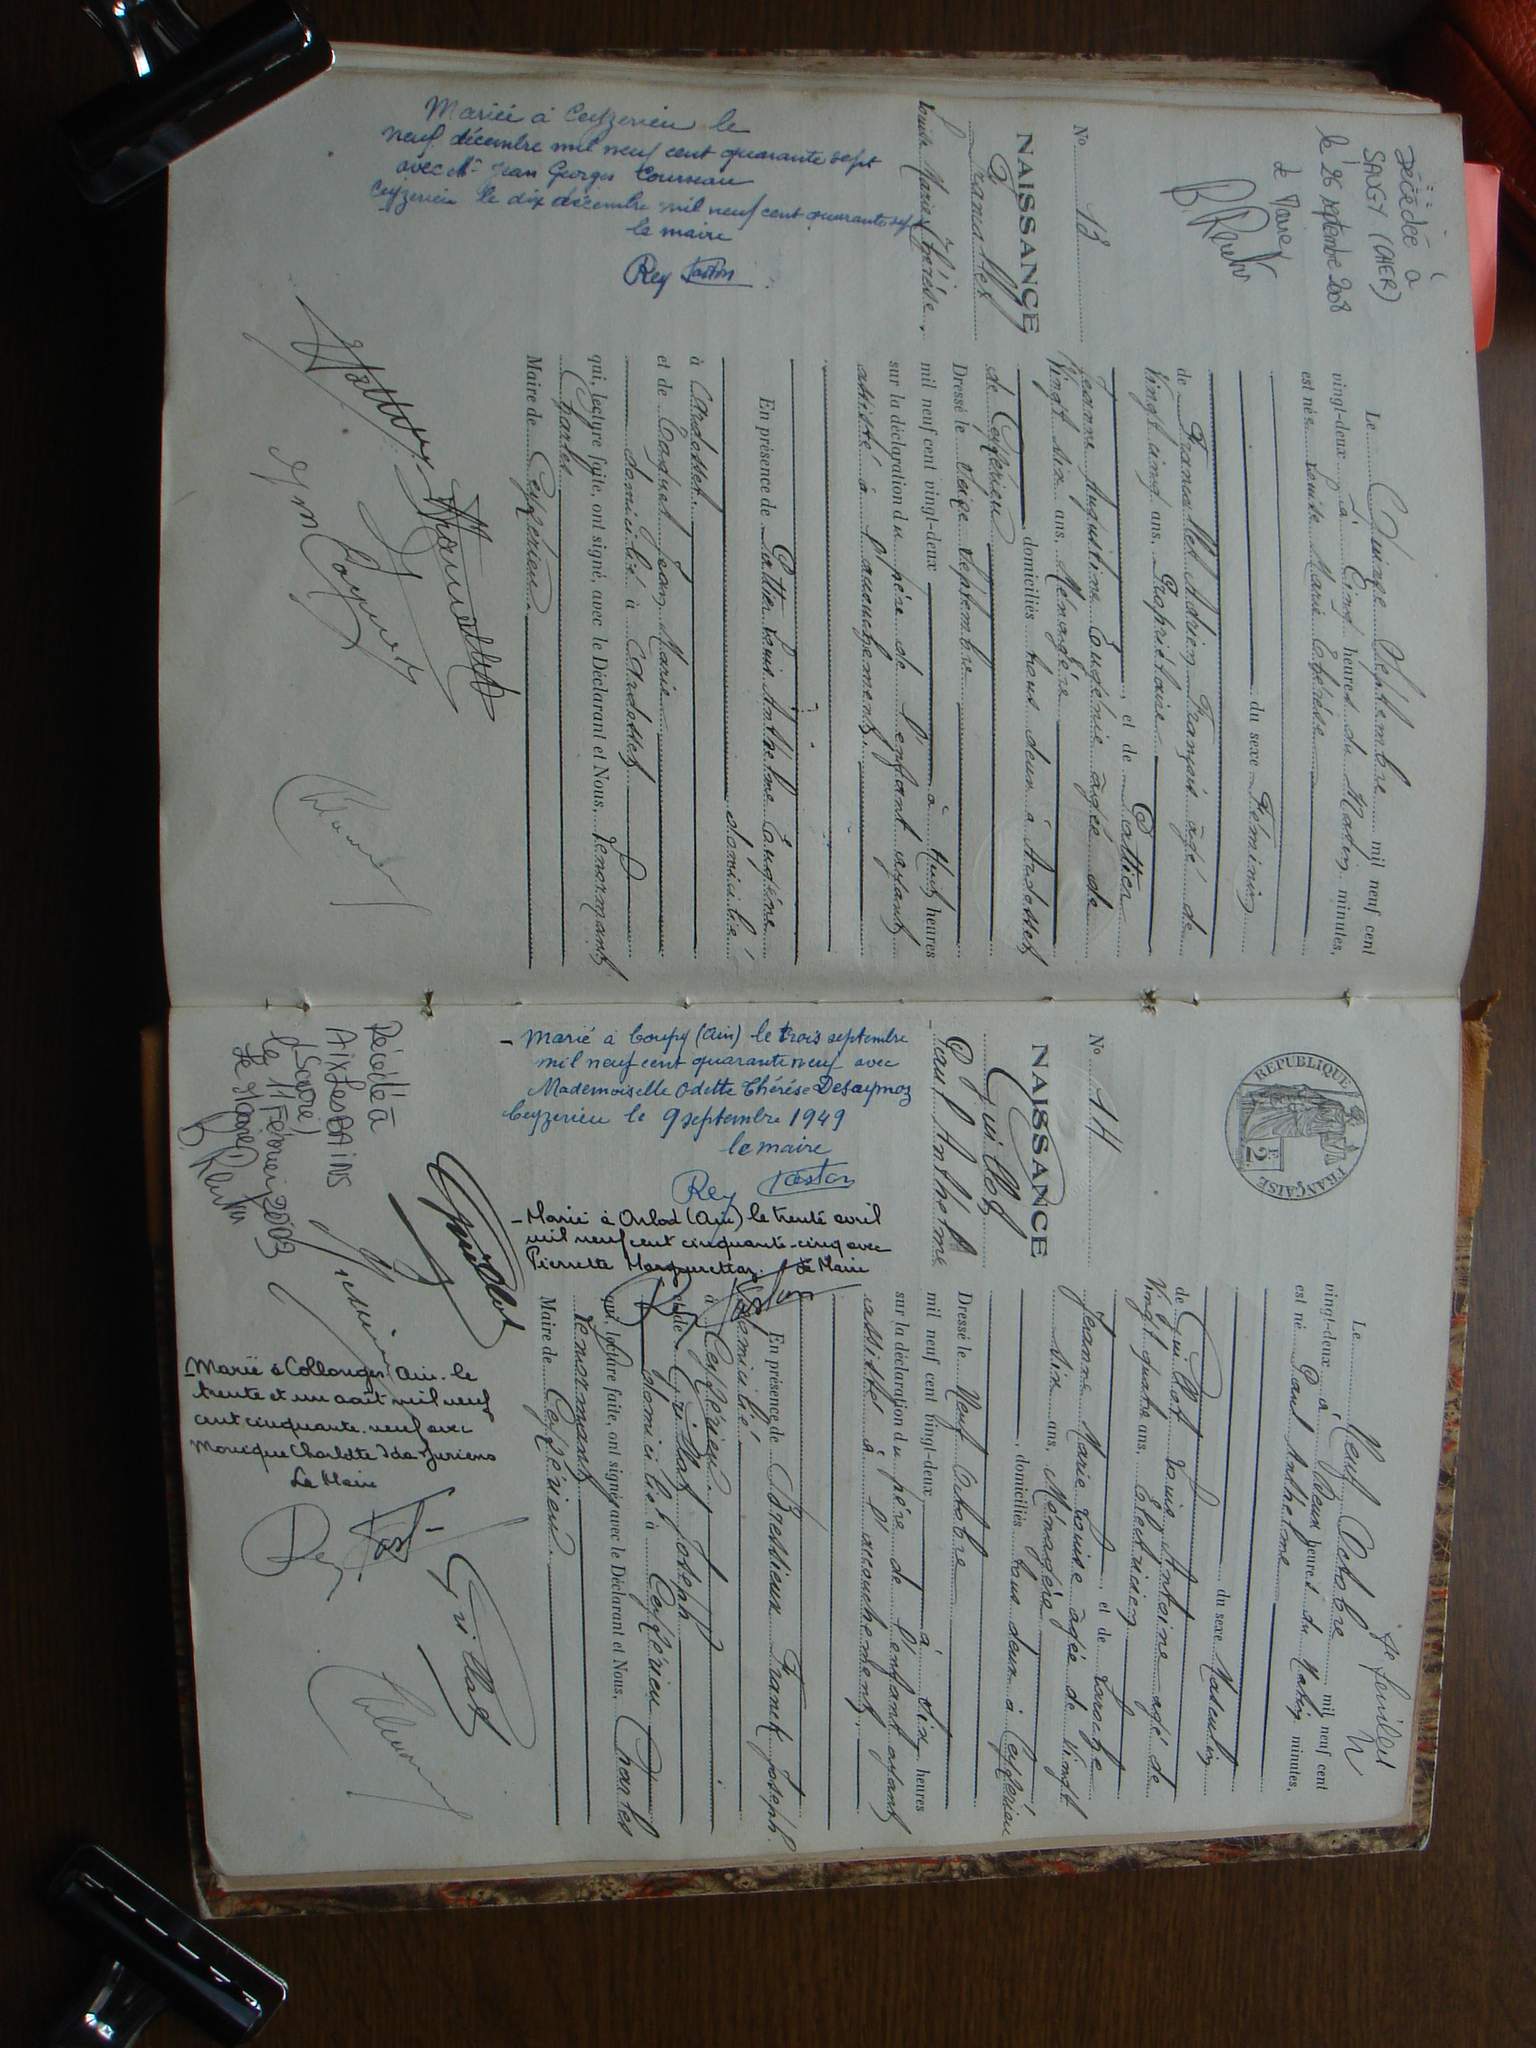 Décédée à
SAUGY (CHER)
le 26 septembre 2008
le Maire
N° 13
NAISSANCE
Louise Marie Thérèse
Mariée à Ceyzerieu le
neuf décembre mil neuf cent quarante sept
avec Mr Jean Georges
Ceyzerieu le dix décembre mil neuf cent quarante sept
le maire
Rey Gaston
Le Quinze Septembre mil neuf cent
vingt-deux à Cinq heures du Matin minutes,
est née Louise Marie Thérèse
du sexe Féminin
de Adrien François âgé de
Vingt cinq ans, Propriétaire
, et de
Jeanne Augustine Eugénie âgée de
Vingt six ans, Ménagère
domiciliés tous deux à Ardosset
de Ceyzérieu
Dressé le Seize Septembre
mil neuf cent vingt-deux à Huit heures
sur la déclaration du père de l'enfant ayant
assisté à l'accouchement
En présence de Louis Anthelme Eugène
domicilié
à Ardosset
et de Jean Marie
domicilié à Ardosset
qui, lecture faite, ont signé, avec le Déclarant et Nous, Venormand
Charles
Maire de Ceyzérieu
4e feuillet
REPUBLIQUE FRANÇAISE
2F
N° 14
NAISSANCE
Guillot
Paul Anthelme
- Marié à Coupy (Ain) le trois septembre
mil neuf cent quarante neuf avec
Mademoiselle Odette Thérèse Desaymoz
Ceyzerieu le 9 septembre 1949
le maire
Rey Gaston
- Marié à Arlod (Ain) le trente avril
mil neuf cent cinquante-cinq avec
Pierrette le Maire
Le Neuf Octobre mil neuf cent
vingt-deux à Deux heures du Matin minutes,
est né Paul Anthelme
du sexe Masculin
de Guillot Louis Antoine âgé de
Vingt quatre ans, Electricien
, et de Laroche
Jeanne Marie Louise âgée de Vingt
six ans, Ménagère
, domiciliés tous deux à Ceyzérieu
Dressé le Neuf Octobre
mil neuf cent vingt-deux à Dix heures
sur la déclaration du père de l'enfant ayant
assisté à l'accouchement
En présence de Bressieux Franck Joseph
domicilié
à Ceyzérieu
et de Joseph
domicilié à Ceyzérieu
qui, lecture faite, ont signé, avec le Déclarant et Nous, Charles
Venormand
Maire de Ceyzérieu
Guillot
Décédé à
AIX LES BAINS
(Savoie)
le 11 Février 2003
le Maire
- Marié à Collonges Ain le
trente et un août mil neuf
cent cinquante neuf avec
Monique Charlotte Ida Juriens
Le Maire
Rey